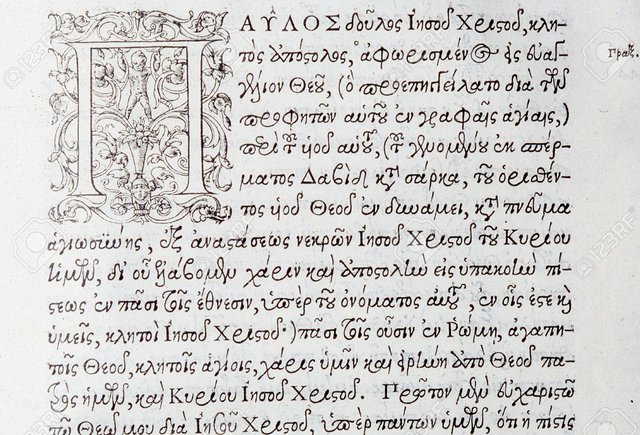 ΠΑῦΛΟΣ δοῦλος Ἰησοῦ Χριστοῦ, κλη-
τὸς ἀπόστολος, ἀφωρισμένος εἰς εὐαγ-
γέλιον Θεοῦ, (ὃ προεπηγγείλατο διὰ τῶν
προφητῶν αὐτοῦ ἐν γραφαῖς ἁγίαις,)
περὶ τοῦ υἱοῦ αὐτοῦ, (τοῦ γενομένου ἐκ σπέρ-
ματος Δαβὶδ κατὰ σάρκα, τοῦ ὁρισθέν-
τος υἱοῦ Θεοῦ ἐν δυνάμει, κατὰ πνεῦμα
ἁγιωσύνης, ἐξ ἀναστάσεως νεκρῶν Ἰησοῦ Χριστοῦ τοῦ Κυρίου
ἡμῶν, δι' οὗ ἐλάβομεν χάριν καὶ ἀποστολὴν εἰς ὑπακοὴν πί-
στεως ἐν πᾶσι τοῖς ἔθνεσιν, ὑπὲρ τοῦ ὀνόματος αὐτοῦ, ἐν οἷς ἐστε καὶ
ὑμεῖς, κλητοὶ Ἰησοῦ Χριστοῦ·) πᾶσι τοῖς οὖσιν ἐν Ῥώμῃ, ἀγαπη-
τοῖς Θεοῦ, κλητοῖς ἁγίοις, χάρις ὑμῖν καὶ εἰρήνη ἀπὸ Θεοῦ πα-
τρὸς ἡμῶν, καὶ Κυρίου Ἰησοῦ Χριστοῦ. Πρῶτον μὲν εὐχαριστῶ
τῷ Θεῷ μου διὰ Ἰησοῦ Χριστοῦ, ὑπὲρ πάντων ὑμῶν, ὅτι ἡ πίστις
Πραξ.
123RF